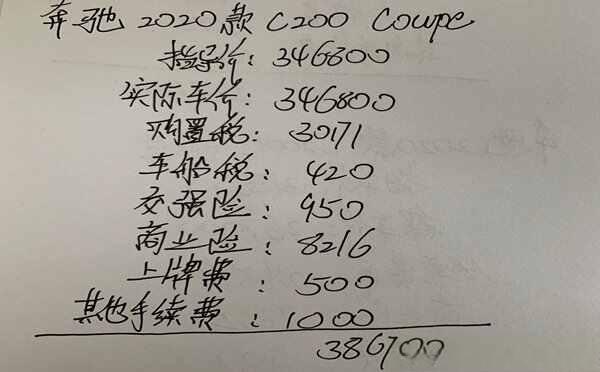 奔驰 2020款 C200 Coupe
指导价: 346800
实际车价: 346800
购置税: 30171
车船税: 420
交强险: 950
商业险: 8216
上牌费: 500
其他手续费: 1000
386700